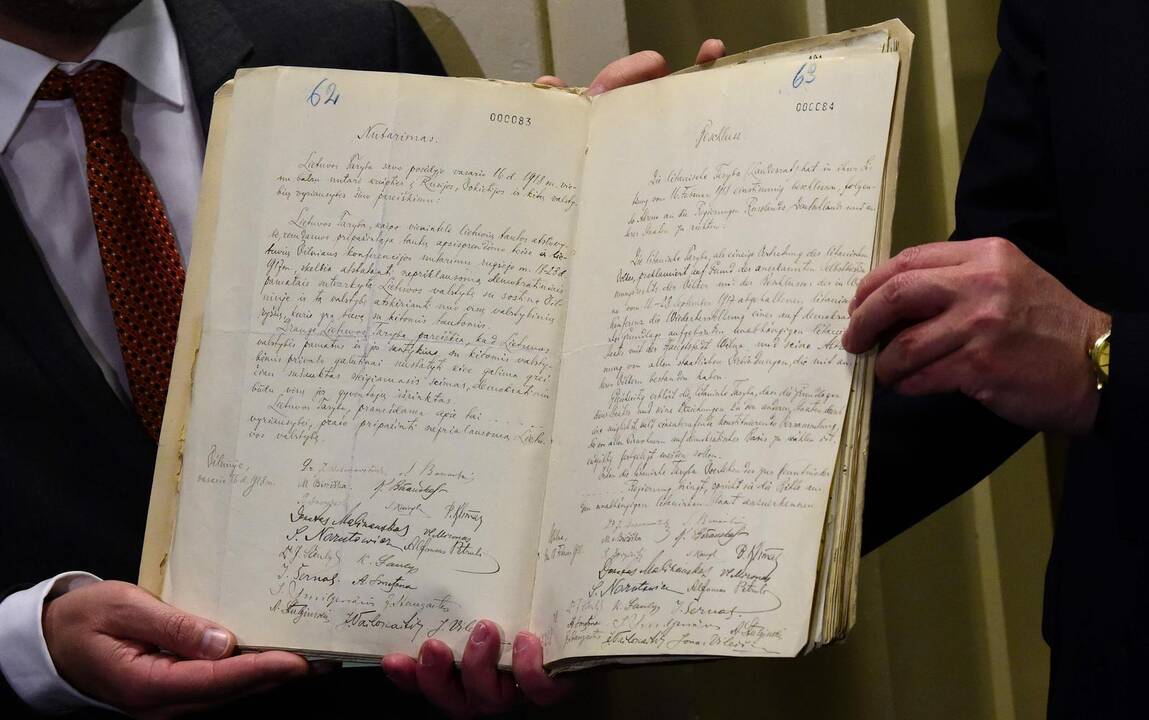 62
000083
Nutarimas.
Lietuvos Taryba savo posėdyje vasario 16 d. 1918 m. vienu
balsu nutarė kreiptis į Rusijos, Vokietijos ir kitų valsty-
bių vyriausybes šiuo pareiškimu:
Lietuvos Taryba, kaipo vienintelė lietuvių tautos atstovy-
bė, remdamos pripažintąja tautų apsisprendimo teise ir lie-
tuvių Vilniaus konferencijos nutarimu rugsėjo m. 18-23 d.
1917 m., skelbia atstatanti nepriklausomą demokratiniais
pamatais sutvarkytą Lietuvos valstybę su sostine Vil-
niuje ir tą valstybę atskirianti nuo visų valstybinių
ryšių, kurie yra buvę su kitomis tautomis.
Drauge Lietuvos Taryba pareiškia, kad Lietuvos
valstybės pamatus ir jos santykius su kitomis valsty-
bėmis privalo galutinai nustatyti kiek galima grei-
čiau sušauktas steigiamasis seimas, demokratiniu
būdu visų jos gyventojų išrinktas.
Lietuvos Taryba, pranešdama apie tai
vyriausybei, prašo pripažinti nepriklausomą Lietu-
vos valstybę.
Vilniuje,
vasario 16 d. 1918 m.
M. Biržiška
S. Kairys P. Klimas
Donatas Malinauskas Vl. Mironas
S. Narutowicz Alfonas Petrulis
K. Šaulys
J. Šernas A. Smetona
J. Smilgevičius
A. Stulginskis J. Vailokaitis J. Vileišis
63
000084
Beschluss
Die litauische Taryba (Landesrat) hat in ihrer Sit-
zung vom 16. Februar 1918 einstimmig beschlossen, folgen-
de Adresse an die Regierungen Russlands, Deutschlands und an-
derer Staaten zu richten:
Die litauische Taryba, als einzige Vertretung des litauischen
Volkes, proklamiert auf Grund des anerkannten Selbstbestim-
mungsrechts der Völker und des Beschlusses der in Wil-
na vom 18.-23. September 1917 abgehaltenen litauischen
Konferenz die Wiederherstellung eines auf demokra-
tischer Grundlage aufgebauten unabhängigen litauischen
Staates mit der Hauptstadt Wilna und seine Abtren-
nung von allen staatlichen Verbindungen, die mit an-
dern Völkern bestanden haben.
Gleichzeitig erklärt die litauische Taryba, dass die Grundlagen
dieses Staates und seine Beziehungen zu den anderen Staaten durch
die möglichst bald einzuberufende konstituierende Versammlung,
die von allen Einwohnern auf demokratischer Basis zu wählen ist,
endgültig festgelegt werden sollen.
Indem die litauische Taryba Vorstehendes zur Kenntnis der
Regierung bringt, spricht sie die Bitte um
den unabhängigen litauischen Staat anzuerkennen
M. Biržiška
S. Kairys P. Klimas
Donatas Malinauskas Vl. Mironas
S. Narutowicz Alfonas Petrulis
K. Šaulys J. Šernas
A. Smetona J. Smilgevičius A. Stulginskis
J. Vailokaitis Jonas Vileišis